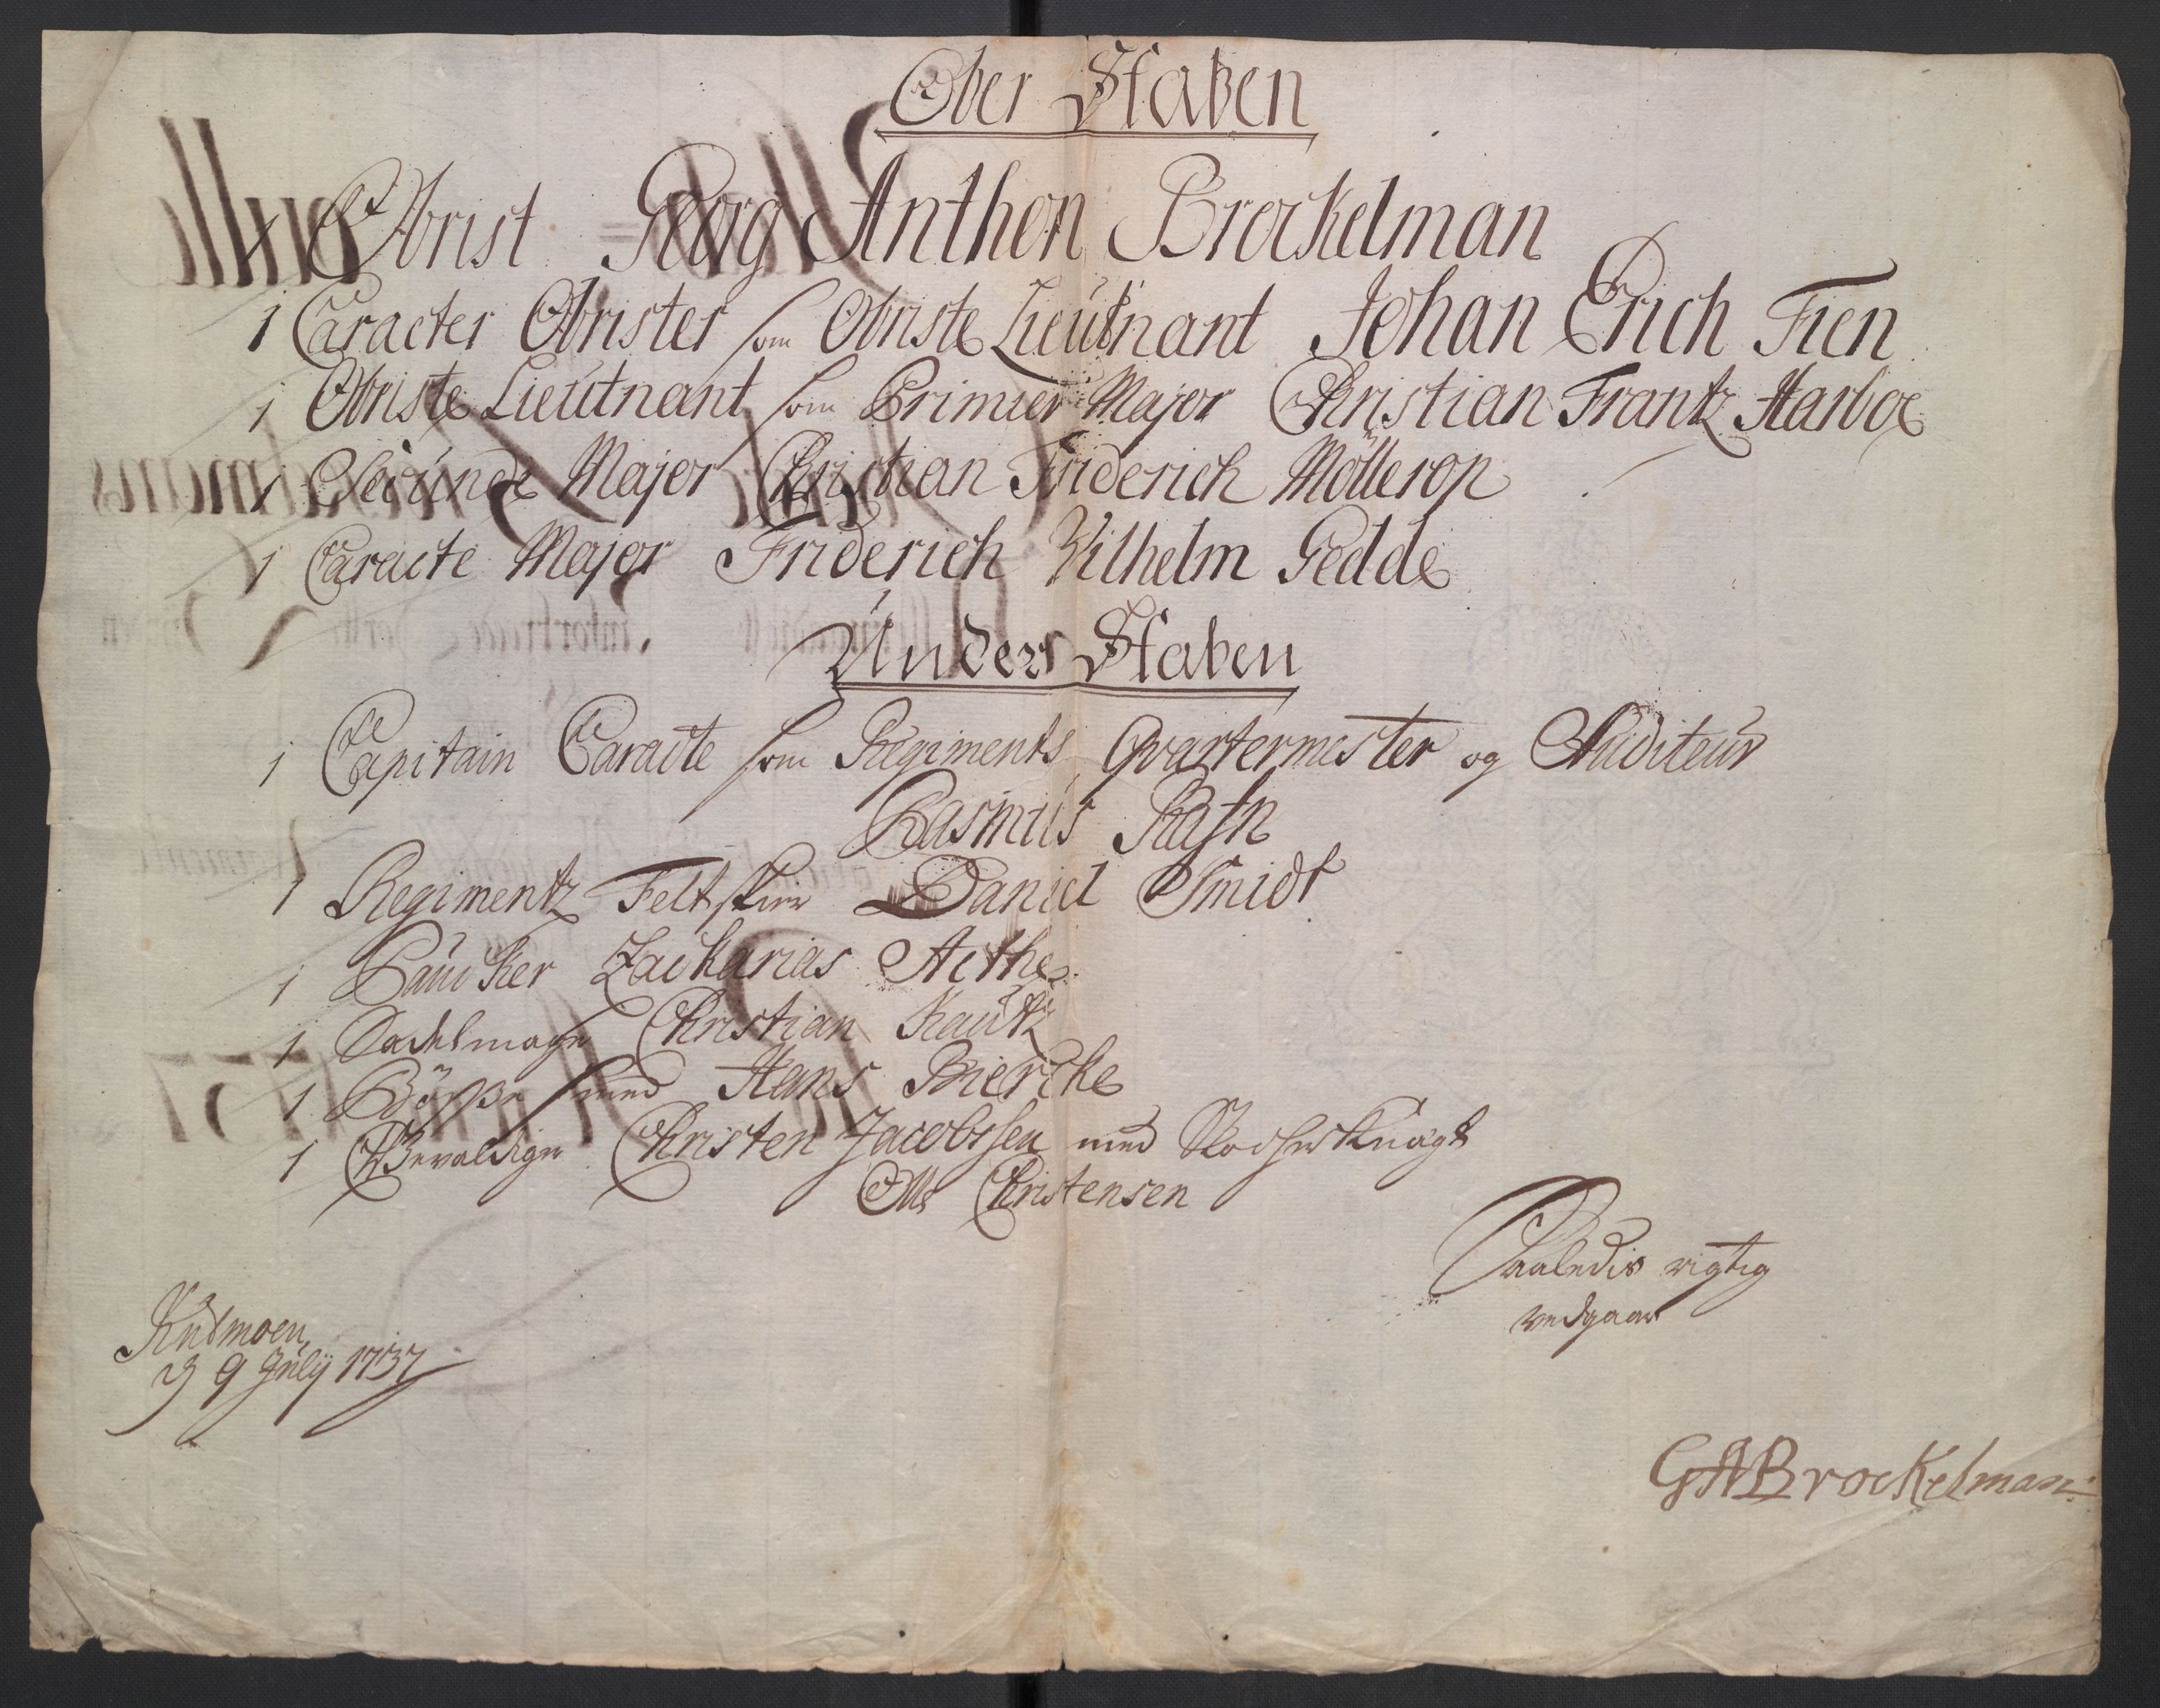 Ober Staben
1 Obrist Georg Anthon Brockelman
1 Caracter Obrister som Obriste Lieutnant Johan Erich Fien
1 Obriste Lieutnant som Primier Major Christian Frantz Harboe
1 Secunde Major Christian Friderich Möllerop
1 Caracte Major Friderich Wilhelm Gedde
Under Staben
1 Capitain Caracte som Regiments Qvartermester og Auditeur
Rasmus Rafn
1 Regimentz Feltskier Daniel Smidt
1 Paucker Zacharias Aethe
1 Sadelmager Christian Kautz
1 Bösse smed Hans Biercke
1 Gevaldiger Christen Jacobssen med Stocher Knegt
Ole Christensen
Saaledis rigtig
vedgaar
Kulmoen,
d 9 July 1737
GABrockelman